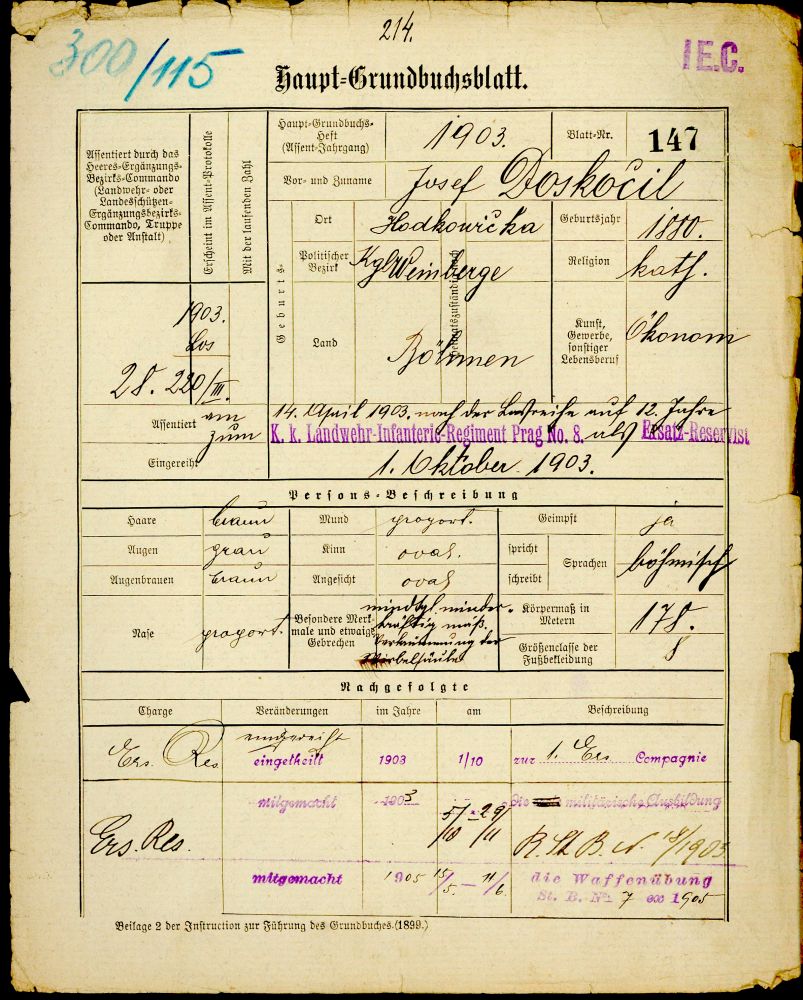 214.
300/115
I E.C.
Haupt-Grundbuchsblatt.
Assentiert durch das
Heeres-Ergänzungs-
Bezirks-Commando
(Landwehr- oder
Landesschützen-
Ergänzungsbezirks-
Commando, Truppe
oder Anstalt)
Erscheint im Assent-Protokolle
Mit der laufenden Zahl
Haupt-Grundbuchs-
Heft
(Assent-Jahrgang)
1903.
Blatt-Nr.
147
Vor- und Zuname
Josef Doskočil
Geburts-
Ort
Hodkowička
Geburtsjahr
1880.
Politischer
Bezirk
Kgl Weinberge
Religion
kath.
Land
Böhmen
Kunst,
Gewerbe,
sonstiger
Lebensberuf
Ökonom
1903.
Los
28. 220/III.
Assentiert
am 14. April 1903. nach der Losreihe auf 12. Jahre
zum K. k. Landwehr-Infanterie-Regiment Prag No. 8. als Ersatz-Reservist
Eingereiht
1. Oktober 1903.
Persons-Beschreibung
Haare braun Mund proport. Geimpft ja
Augen grau Kinn oval. spricht
Sprachen böhmisch
Augenbrauen braun Angesicht oval schreibt
Nase proport. Besondere Merk-
male und etwaige
Gebrechen
mindtgl. minder-
kräftig mäß.
Verkrümmung der
Wirbelsäule
Körpermaß in
Metern
178.
Größenclasse der
Fußbekleidung
8
Nachgefolgte
Charge Veränderungen im Jahre am Beschreibung
Ers. Res eingereiht
eingetheilt 1903 1/10 zur 1. Ers. Compagnie
mitgemacht 1903 5/10 - 29/11 die militärische Ausbildung
Ers. Res. R. St B. N. 18/1903
mitgemacht 1905 15/5. - 11/6. die Waffenübung
St. B. No 7 ex 1905
Beilage 2 der Instruction zur Führung des Grundbuches.(1899.)